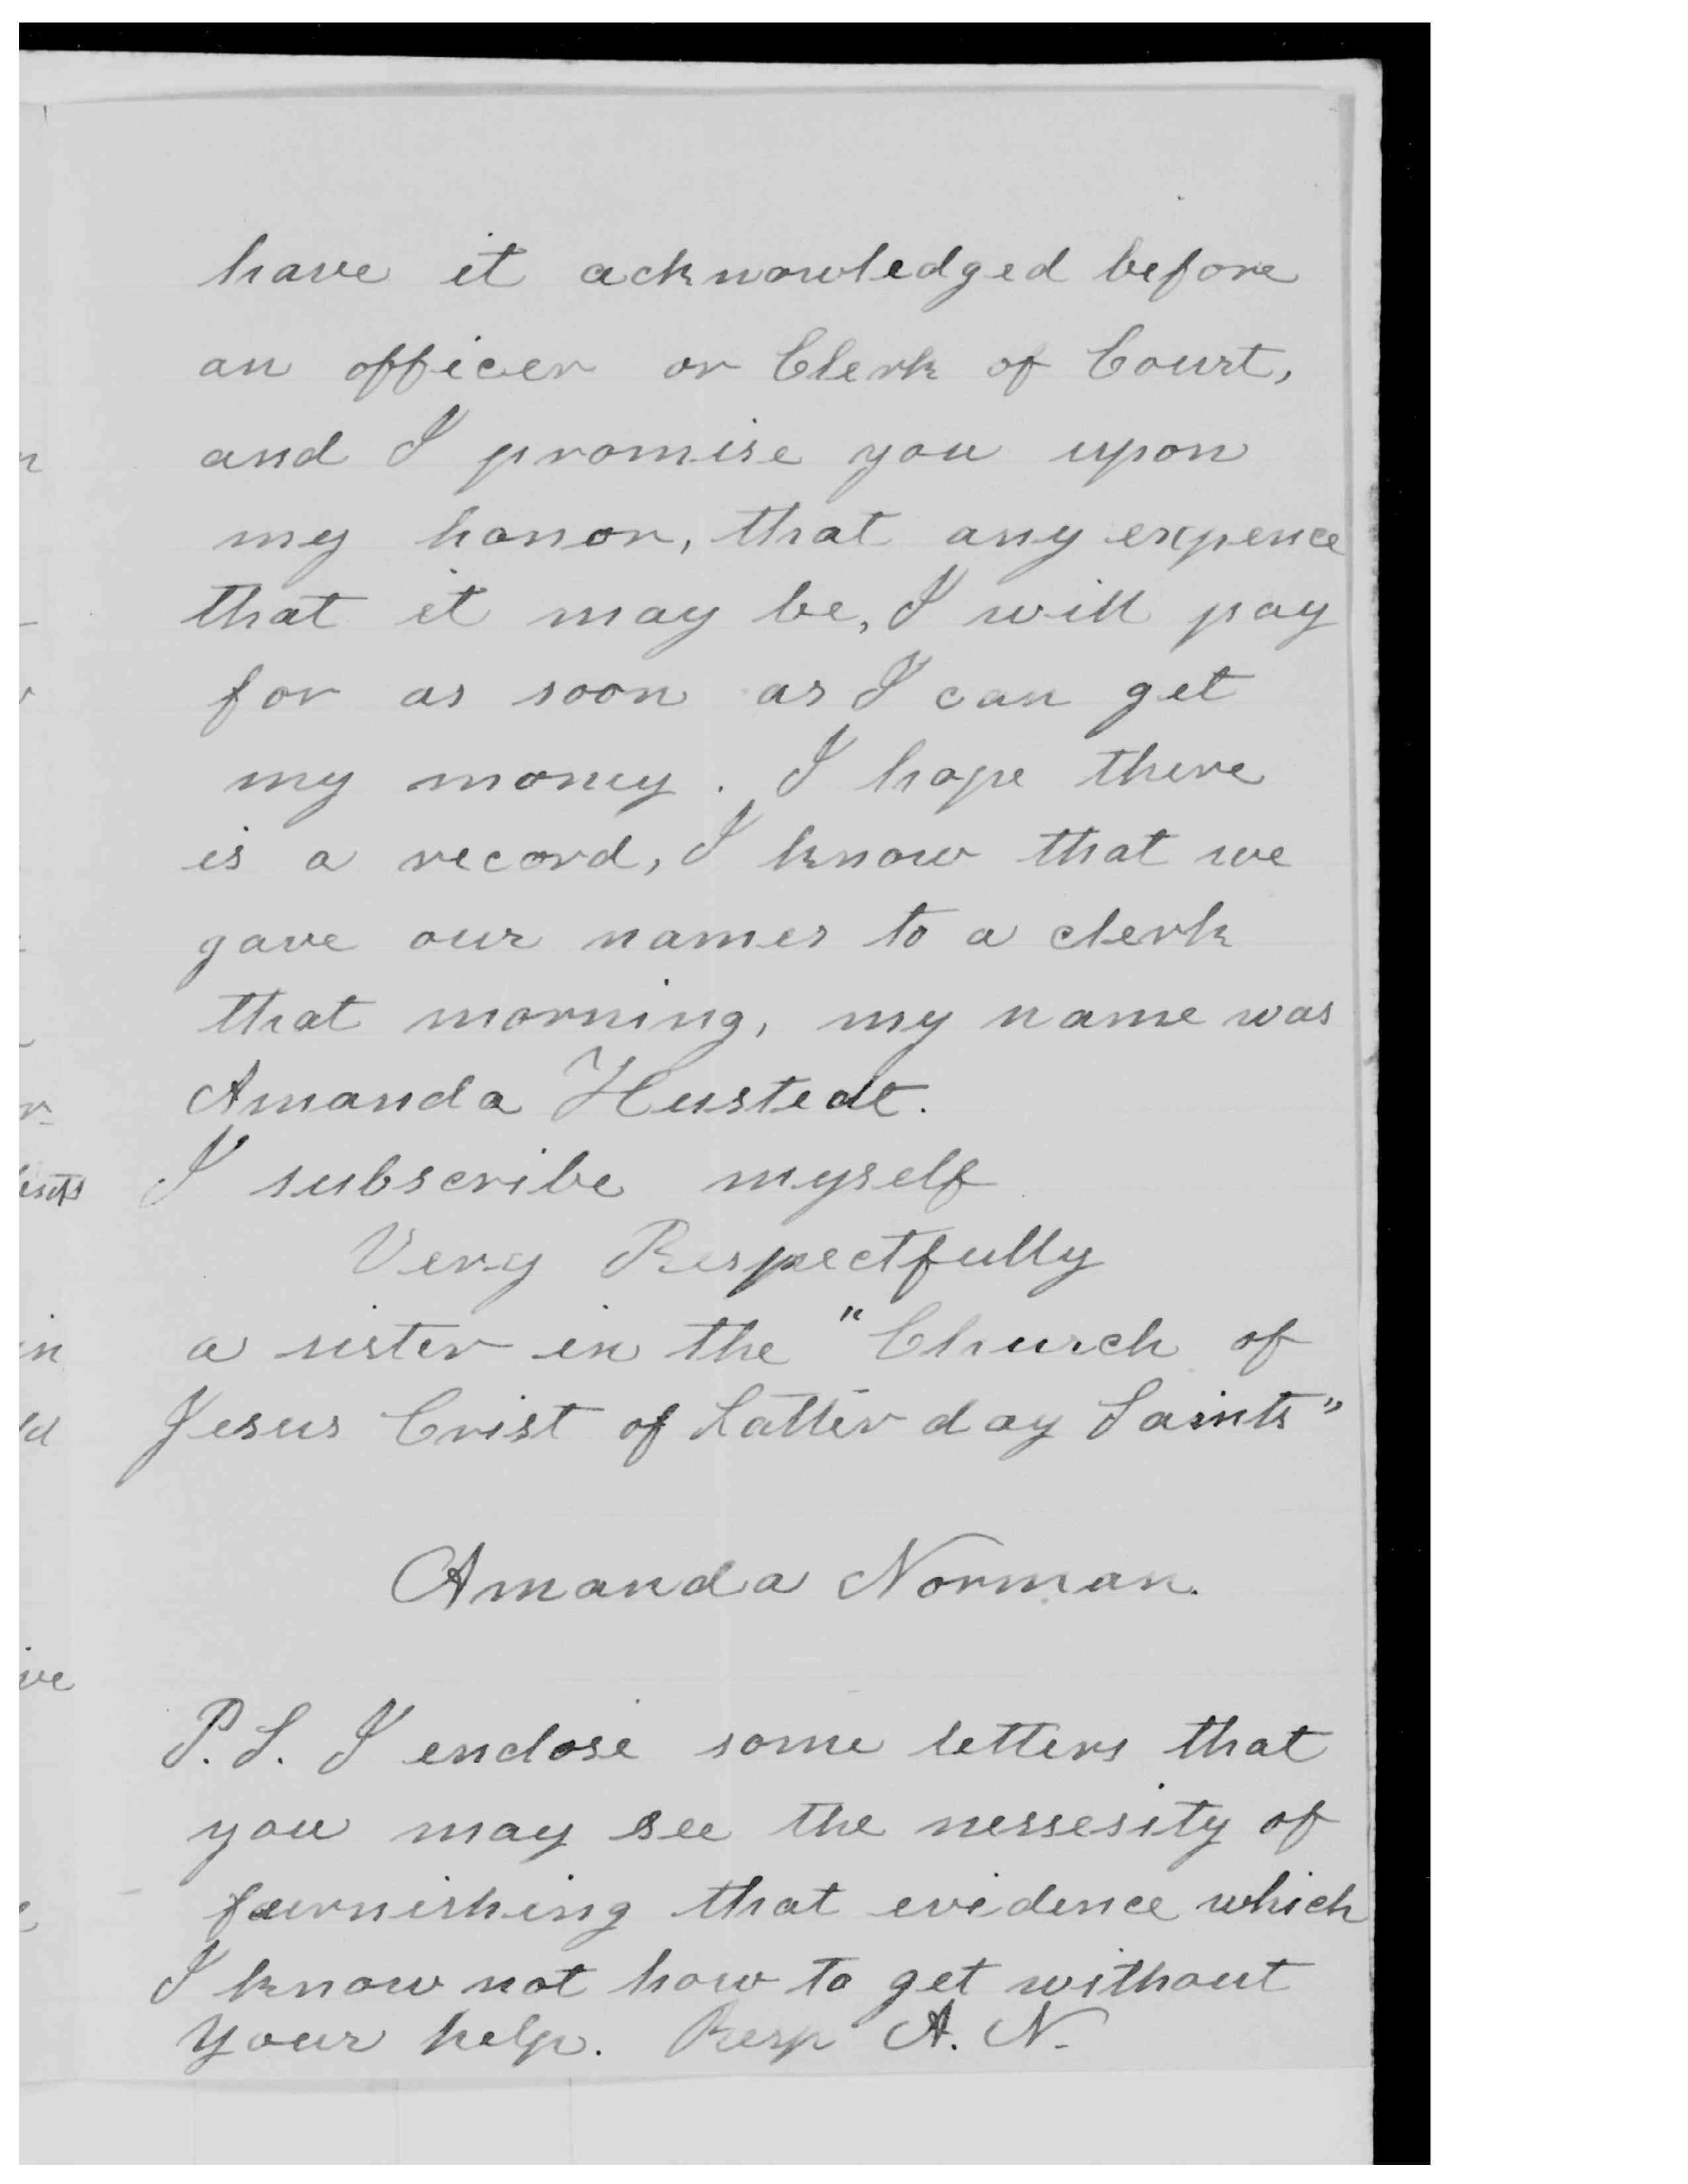 have it acknowledged before
an officer or Clerk of Court,
and I promise you upon
my honor, that any expence
that it may be, I will pay
for as soon as I can get
my money. I hope there
is a record, I know that we
gave our names to a clerk
that morning, my name was
Amanda Hustedt.
I subscribe myself
Very Respectfully
a sister in the "Church of
Jesus Crist of Latter day Saints"
Amanda Norman.
P.S. I enclose some letters that
you may see the nessesity of
furnishing that evidence which
I know not how to get without
your help. Resp A. N.